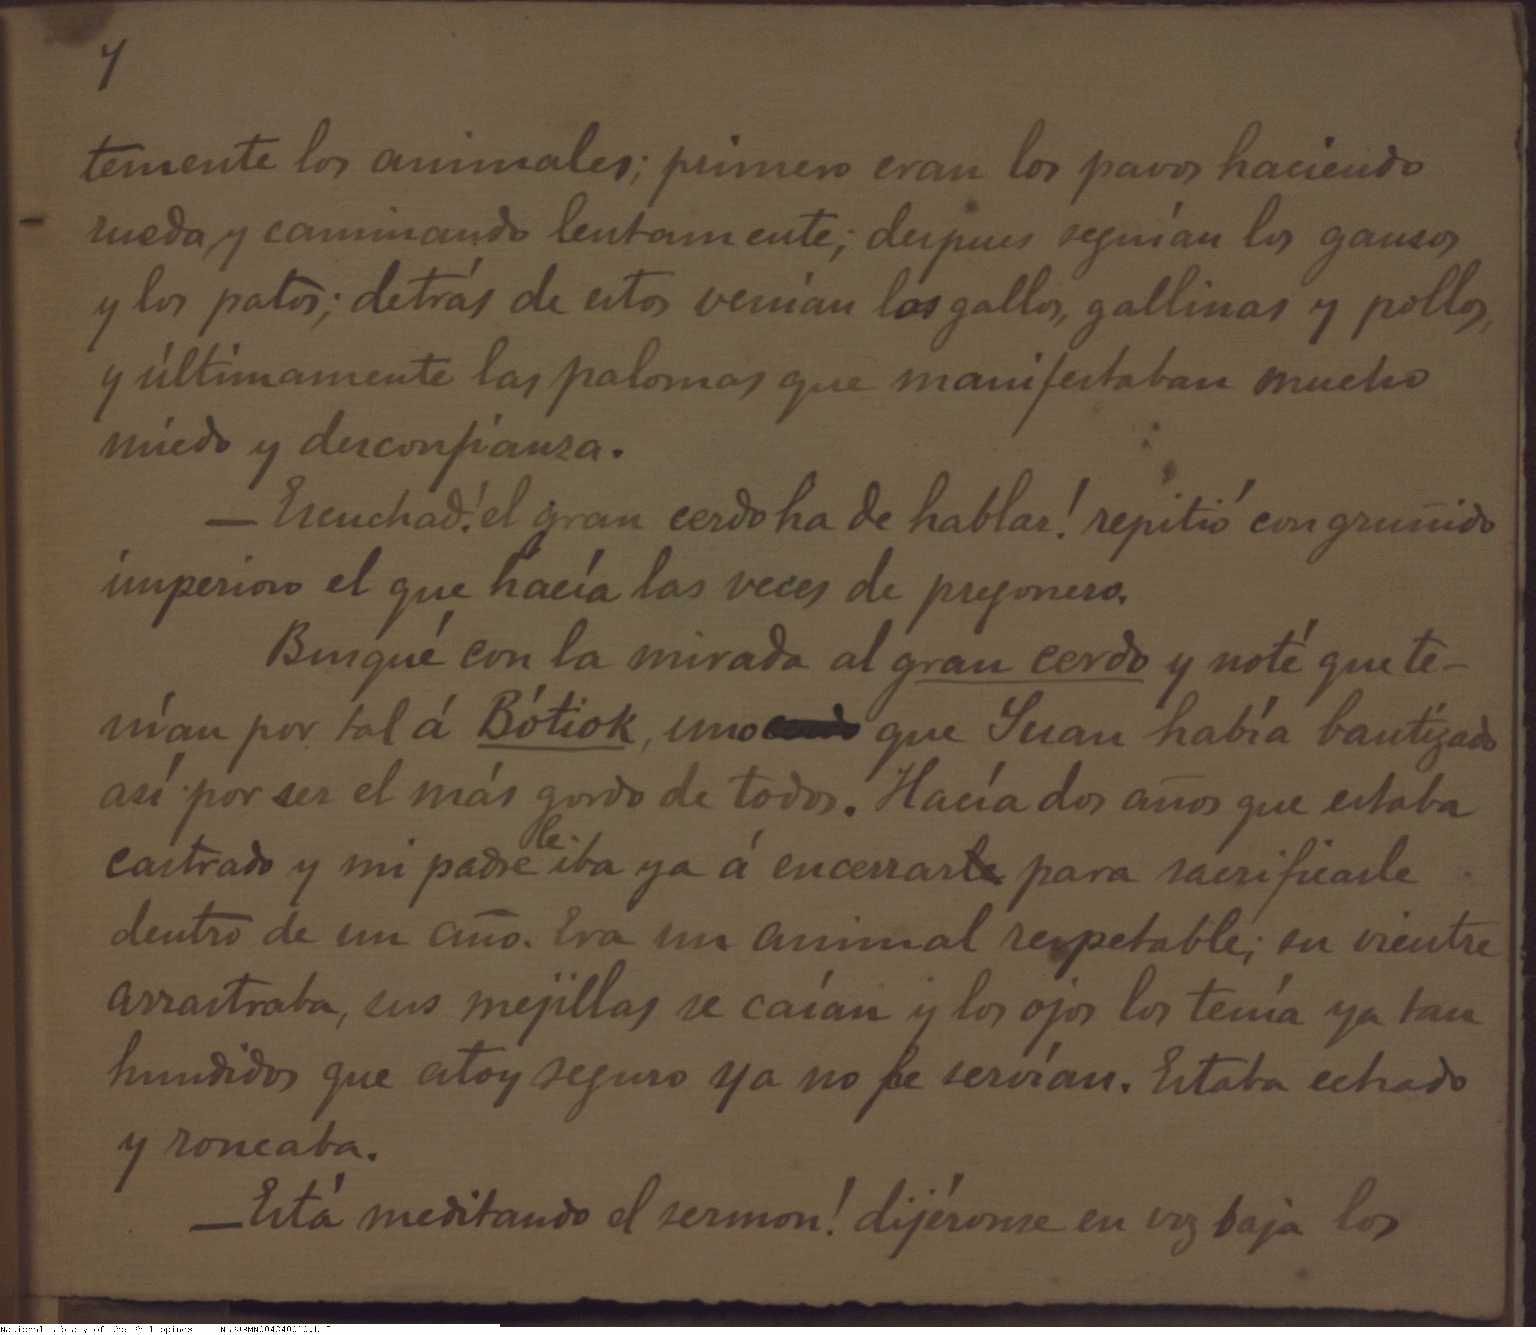 4
temente los animales; primero eran los pavos haciendo
rueda y caminando lentamente; despues seguían los gansos
y los patos; detrás de estos venían los gallos, gallinas y pollos,
y últimamente las palomas que manifestaban mucho
miedo y desconfianza.
— Escuchad! el gran cerdo ha de hablar! repitió con gruñido
imperioso el que hacía las veces de pregonero.
Busqué con la mirada al gran cerdo y noté que te-
nían por tal á Bótiok, uno que Juan había bautizado
así por ser el más gordo de todos. Hacía dos años que estaba
castrado y mi padre le iba ya á encerrar para sacrificarle
dentro de un año. Era un animal respetable; su vientre
arrastraba, sus mejillas se caían y los ojos los tenía ya tan
hundidos que estoy seguro ya no le servían. Estaba echado
y roncaba.
— Está meditando el sermon! dijéronse en voz baja los
National Library of the Philippines